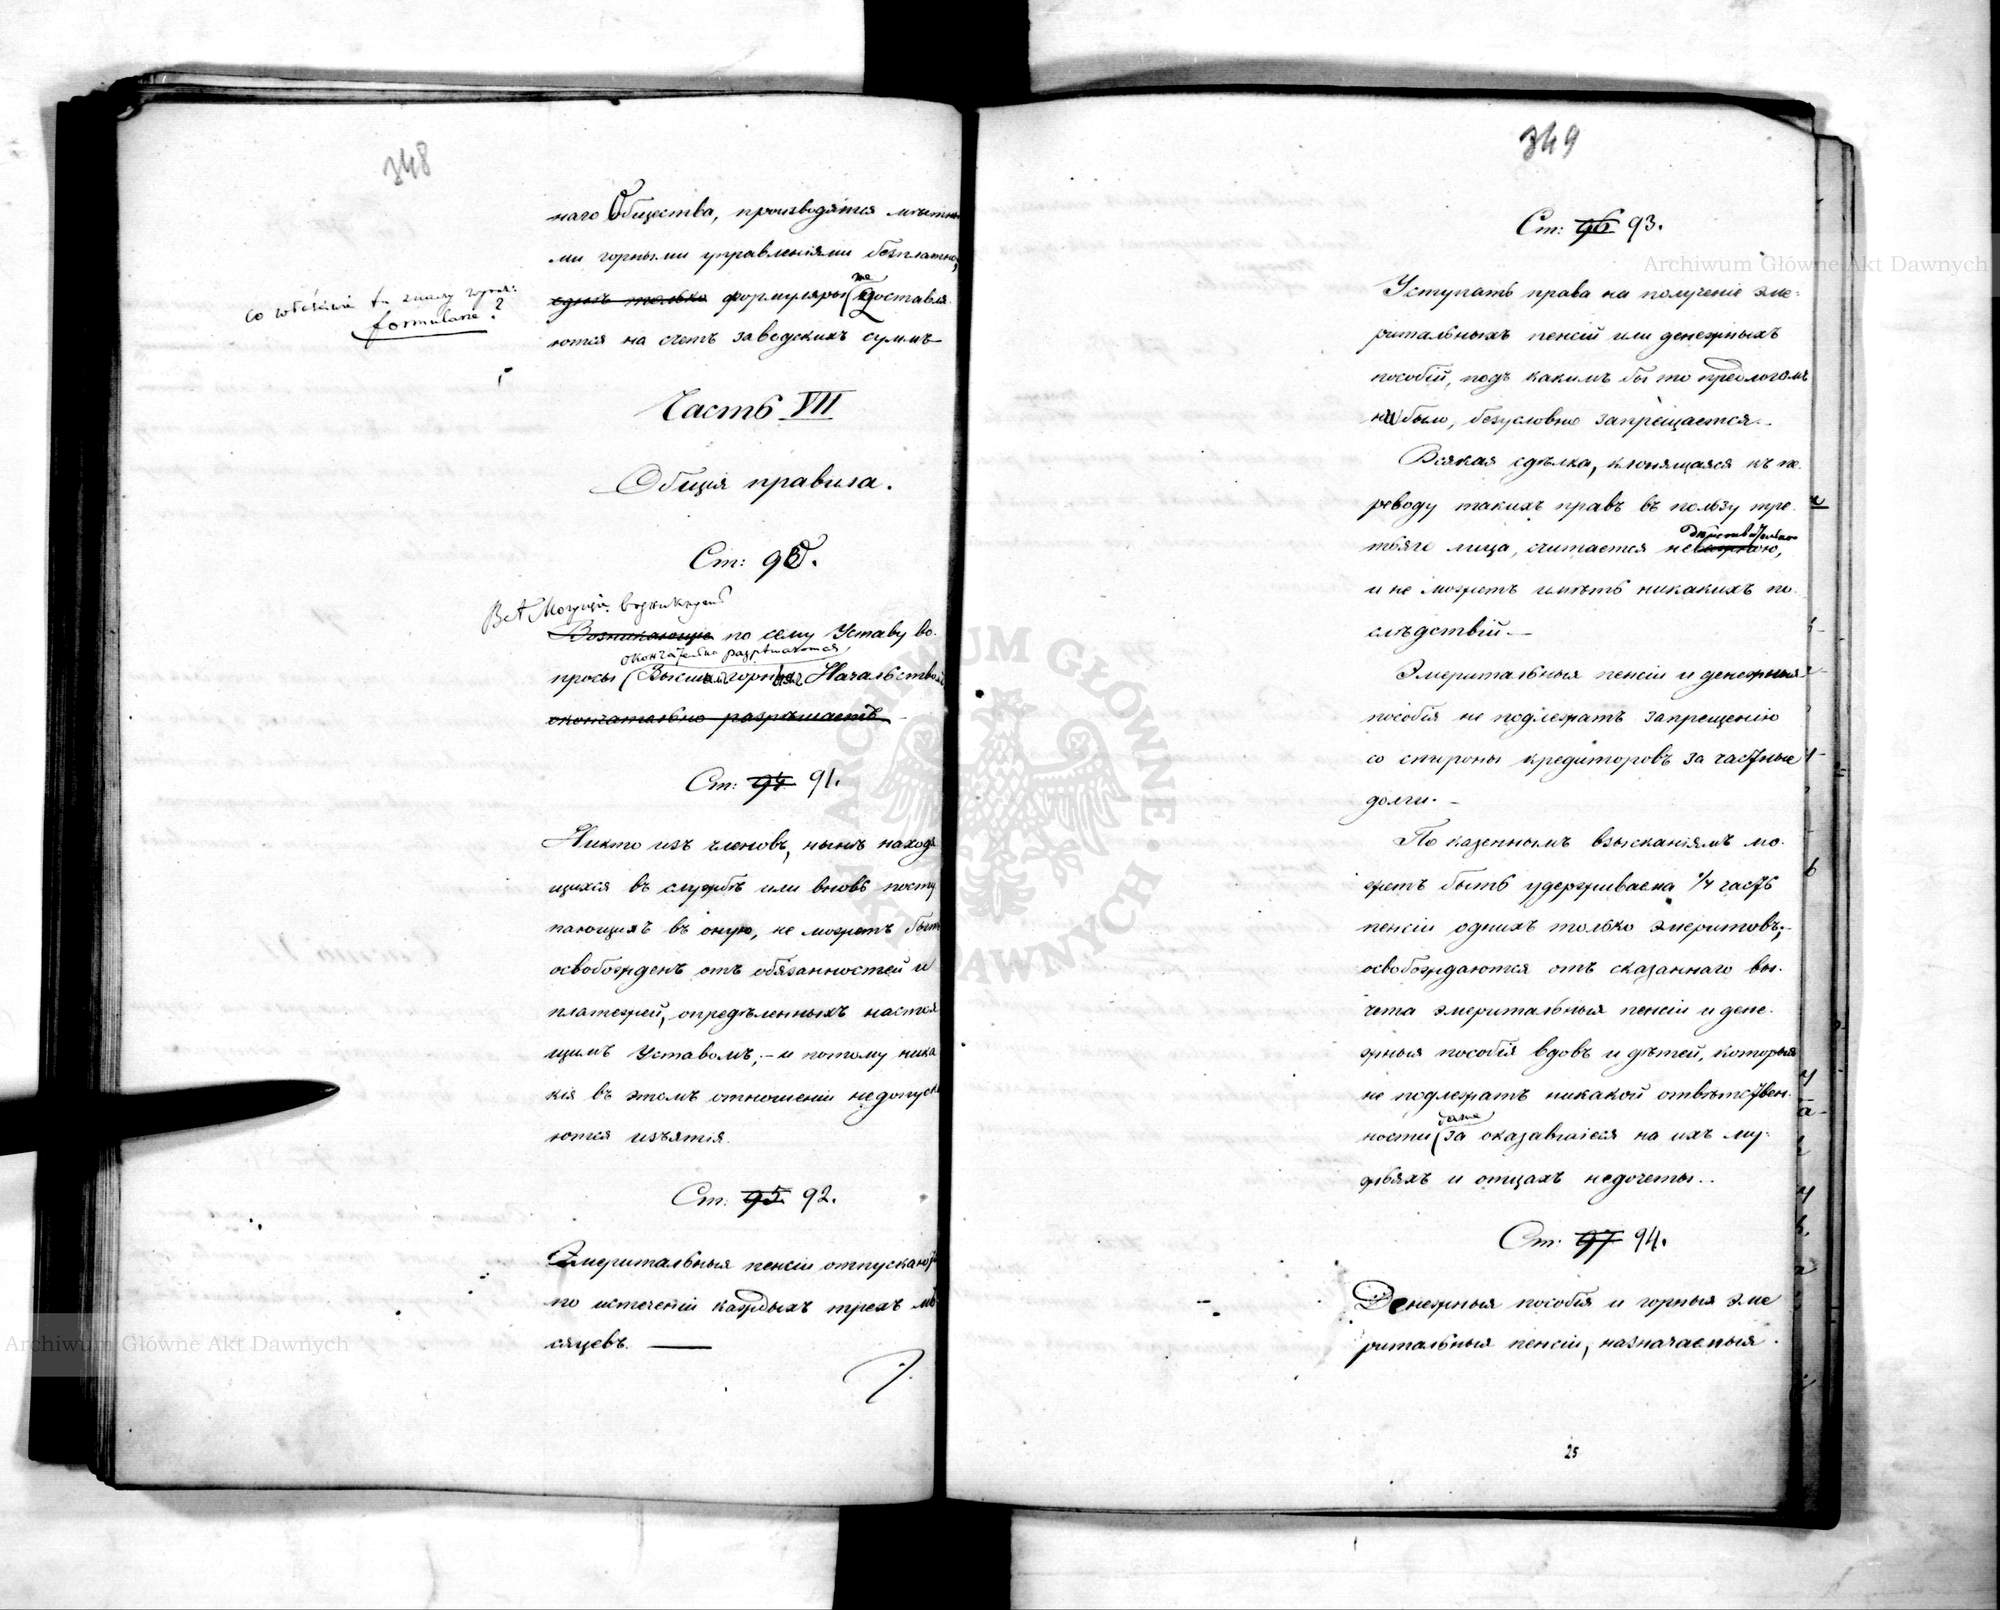 348
наго Общества, производятся мѣстны
ми горными управленіями безплатно,
одни только формуляры же доставля
co właściwie tu znaczy wyraz:
formularze?
ются на счетъ заводскихъ суммъ
Часть VII
Общія правила.
Ст: 90.
Всѣ могущіе возникнуть
Возникающіе по сему Уставу во-
окончательно разрѣшаются
просы Высшимъ горнымъ Начальствомъ
окончательно разрѣшаетъ
Ст: 94 91.
Никто изъ членовъ, нынѣ находя
щихся въ службѣ или вновь посту
пающихъ въ оную, не можетъ быть
освобожденъ отъ обязанностей и
платежей, опредѣленныхъ настоя
щимъ Уставомъ, – и потому ника
кія въ этомъ отношеніи недопуска
ются изъятія.
Ст. 95 92.
Эмеритальныя пенсіи отпускаются
по истеченіи каждыхъ трехъ мѣ
сяцевъ. —
349
Ст: 96 93.
Уступать права на полученіе эме-
ритальныхъ пенсій или денежныхъ
пособій, подъ какимъ бы то предлогомъ
ни было, безусловно запрещается.
Всякая сдѣлка, клонящаяся къ пе-
реводу такихъ правъ въ пользу тре-
дѣйствительною
тьяго лица, считается неважною,
и не можетъ имѣть никакихъ по-
слѣдствій. –
Эмеритальныя пенсіи и денежныя
пособія не подлежатъ запрещенію
со стороны кредиторовъ за частные
долги. –
По казеннымъ взысканіямъ мо-
жетъ быть удерживаема 1/4 часть
пенсіи однихъ только эмеритовъ; –
освобождаются отъ сказаннаго вы-
чета эмеритальныя пенсіи и дене-
жныя пособія вдовъ и дѣтей, которыя
не подлежатъ никакой отвѣтствен-
даже
ности за оказавшіеся на ихъ му-
жьяхъ и отцахъ недочеты.
Ст. 97 94.
Денежныя пособія и горныя эме
ритальныя пенсіи, назначаемыя
25
Archiwum Główne Akt Dawnych
Archiwum Główne Akt Dawnych
ARCHIWUM GŁÓWNE AKT DAWNYCH